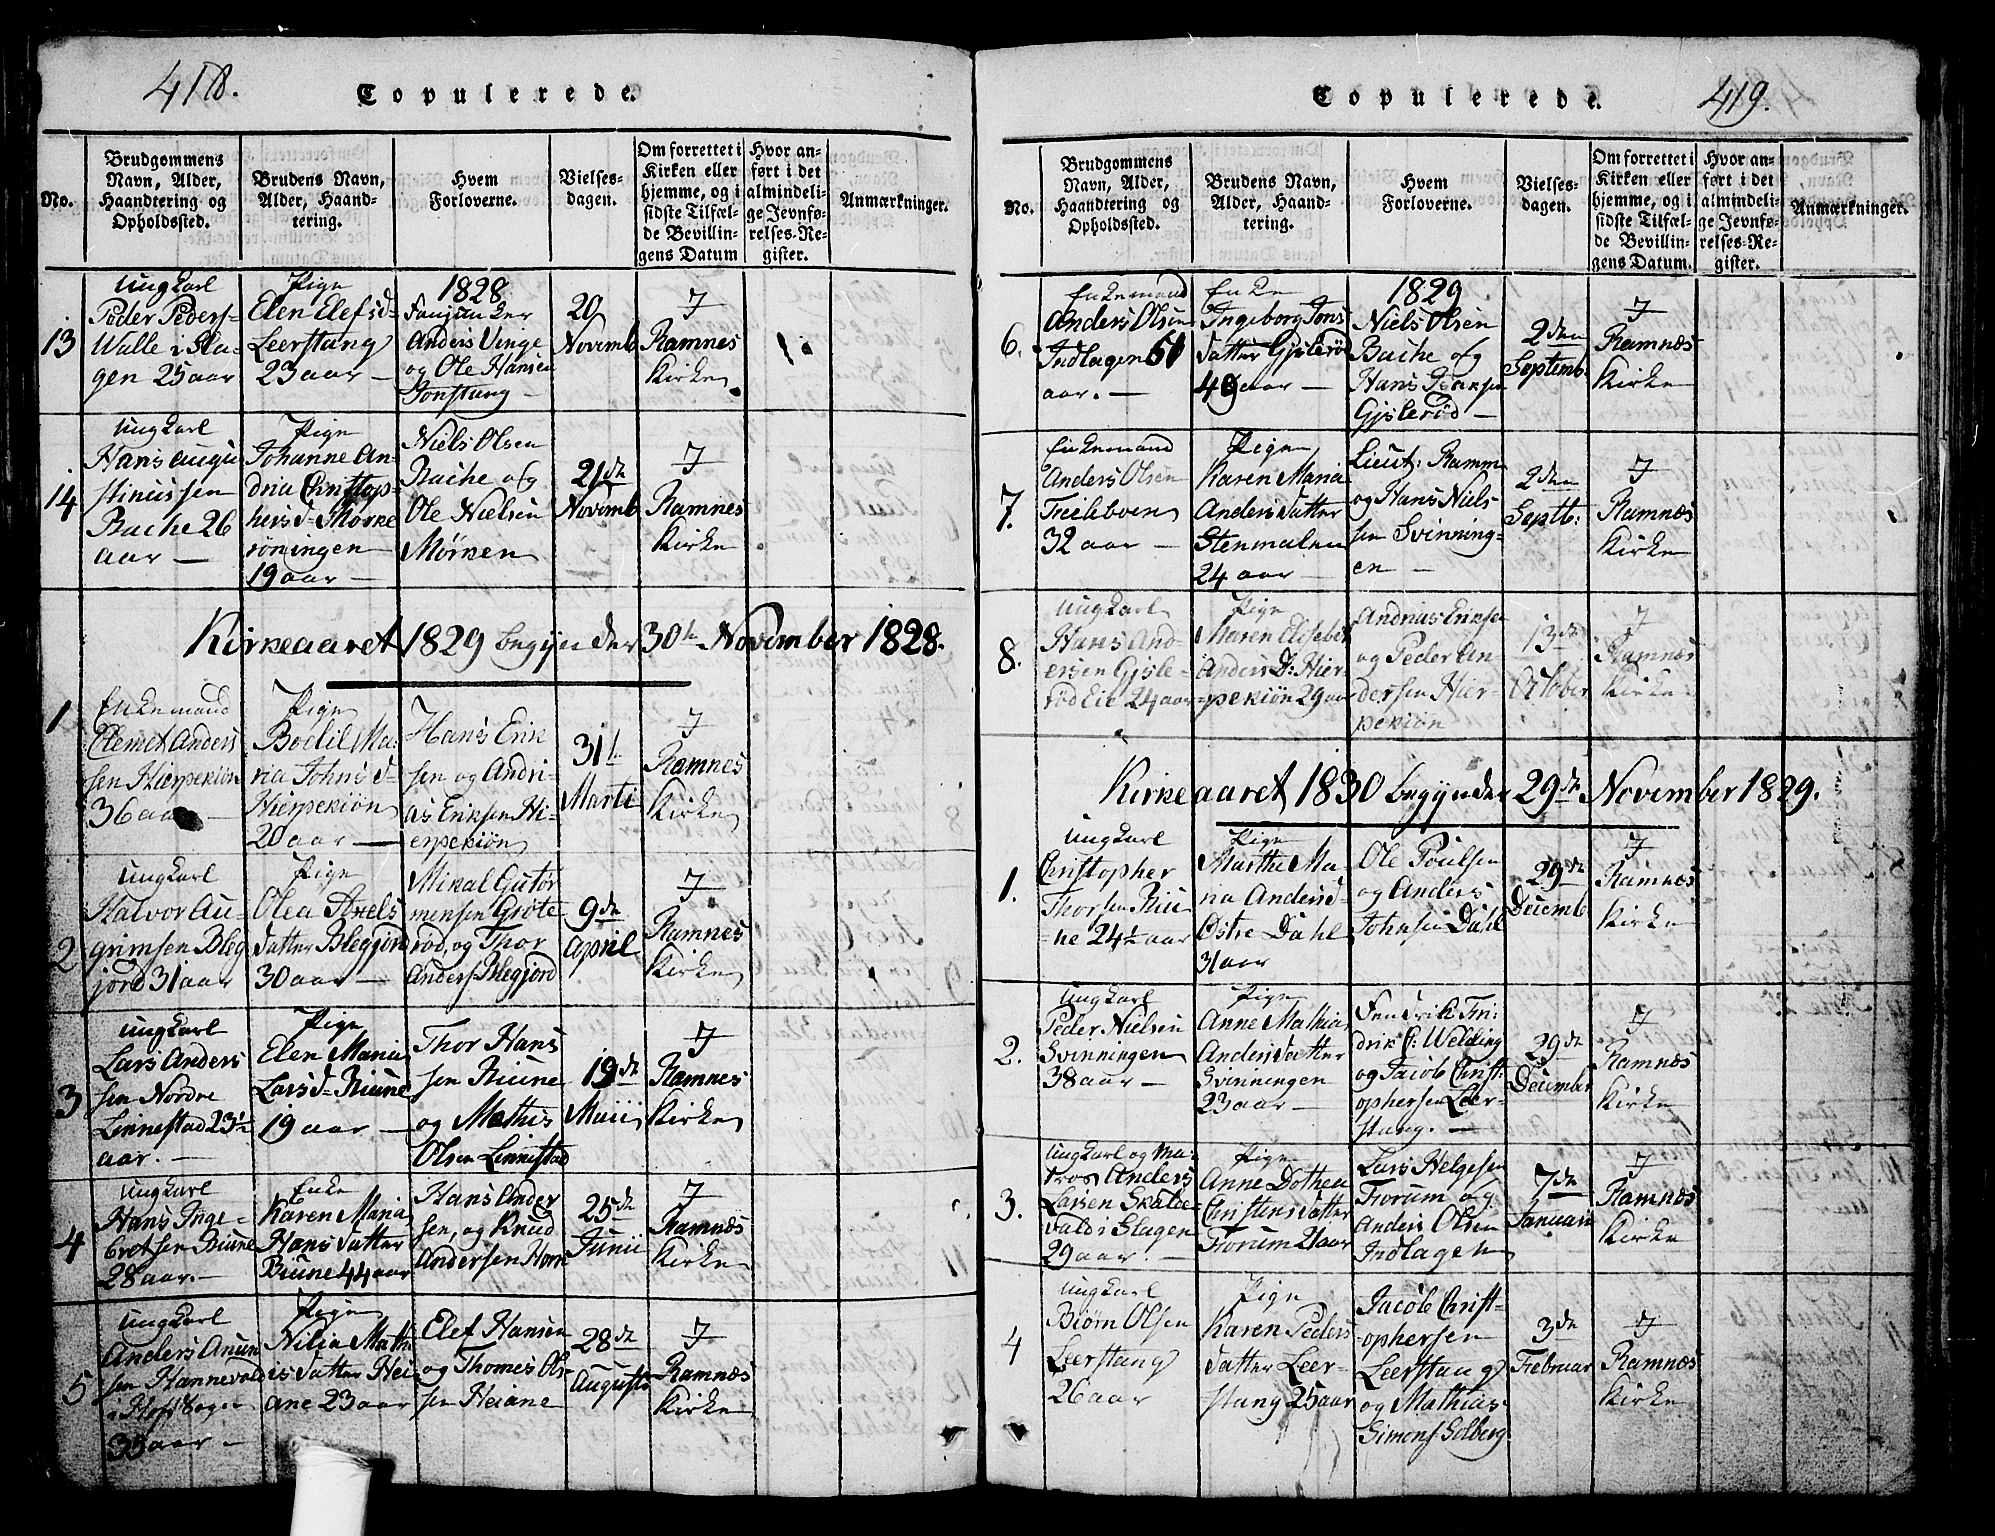 418.
Copulerede.
No.
Brudgommens
Navn, Alder,
Haandtering og
Opholdssted.
Brudens Navn,
Alder, Haand-
tering.
Hvem
Forloverne.
Vielses-
dagen.
Om forrettet i
Kirken eller
hjemme, og i
sidste Tilfæl-
de Bevillin-
gens Datum
Hvor an-
ført i det
almindeli-
ge Jevnfø-
relses-Re-
gister.
Anmærkninger.
13
Ungkarl
Peder Peders-
Walle i Sla-
gen 25 aar
Pige
Elen Elefsd
Leerstang
23 aar —
1828
Anders Vinge
og Ole Hansen
Jonstang —
20
Novemb
I
Ramnes
Kirke
14
Ungkarl
Hans Augu
stinussen
Bache 26
aar —
Pige
Johanne An-
dria Christop-
hersd- Mørke
røningen
19 aar —
Niels Olsen
Bache og
Ole Nielsen
Mørken
21de
Novemb
I
Ramnes
Kirke
Kirkeaaret 1829 begynder 30te November 1828.
1
Enkemand
Clemet Anders
sen Hierpekiøn
36 aar —
Pige
Bodil Ma-
ria Johnsd-
Hierpekiøn
20 aar —
Hans Erik
sen og Andri-
as Eriksen Hi-
erpekiøn
31te
Marti
I
Ramnes
Kirke
2
Ungkarl
Halvor Au-
grimsen Bleg
jord 31 aar
Pige
Olea Axels
datter Blegjord
30 aar —
Mikal Gutor
mensen Grøte-
rød, og Thor
Anders. Blegjord
9de
April
I
Ramnes
Kirke
3
Ungkarl
Lars Anders
sen Nordre
Linnestad 23½
aar. —
Pige
Elen Maria
Larsd- Riune
19 aar —
Thor Hans
sen Riune
og Mathis
Olsen Linnestad
19de
Maii
I
Ramnes
Kirke
4
Ungkarl
Hans Inge-
bretsen Riune
28 aar. —
Enke
Karen Maria
Hans datter
Biune 44 aar
Hans Ander
sen, og Knud
Andersen Horn
25de
Junii
I
Ramnæs
Kirke
5
Ungkarl
Anders Anun
sen Hannevold
35 aar —
Pige
Nilia Mathi
is datter Hei-
ane 23 aar
Elef Hansen
og Thomes Ol-
sen Heiane
28de
Augusti
I
Ramnæs
Kirke
419.
Copulerede.
No.
Brudgommens
Navn, Alder,
Haandtering og
Opholdssted.
Brudens Navn,
Alder, Haand-
tering.
Hvem
Forloverne.
Vielses-
dagen.
Om forrettet i
Kirken eller
hjemme, og i
sidste Tilfæl-
de Bevillin-
gens Datum.
Hvor an-
ført i det
almindeli-
ge Jevnfø-
relses-Re-
gister.
Anmærkninger.
6.
Enkemand
Anders Olsen
Indlagen 51
aar. —
Enke
Ingeborg Jons
datter Gislerød
48 aar —
1829
Niels Olsen
Bache og
Hans Isaksen
Gislerød —
2den
Septemb.
I
Ramnæs
Kirke
7.
Enkemand
Anders Olsen
32 aar —
Pige
Karen Maria
Anders datter
Stenmalen
24 aar —
Lieut: Ramm
og Hans Niels
sen Svinning-
en —
2den
Septb:
I
Ramnæs
Kirke
8.
Ungkarl
Hans And-
ersen Gisle-
rød Eie 24 aar
Pige
Maren Elisebet
Anders D: Hier-
pekiøn 29 aar
Andrias Eriksen
og Peder An-
dersen Hier-
pekiøn
13de
October
I
Ramnæs
Kirke
Kirkeaaret 1830 begynder 29de November 1829.
1.
Ungkarl
Christopher
Thorsen Riu-
ne 24½ aar
Pige
Marthe Ma-
ria Andersd-
Østre Dahl
31 aar
Ole Poulsen
og Anders
Johnsen Dahl
29de
Decemb
I
Ramnæs
Kirke
2.
Ungkarl
Peder Nielsen
Svinningen
38 aar —
Pige
Anne Mathia
Anders datter
Svinningen
23 aar —
Fendrik Fri-
drik C: Welding
og Jacob Christ-
ophersen Leer-
stang. —
29de
December
I
Ramnæs
Kirke
3.
Ungkarl og Ma-
tros Anders
Larsen Skalle-
vald i Slagen
29 aar. —
Pige
Anne Dothea
Christens datter
Fiorum 21 aar
Lars Helgesen
Fiorum og
Anders Olsen
Indlagen
7de
Januari
I
Ramnæs
Kirke
4
Ungkarl
Biørn Olsen
Leerstang
26 aar
Pige
Karen Peders
datter Leer-
stang 25 aar
Jacob Christ-
ophersen
Leerstang
og Mathias
Simons. Solberg
3de
Februar
I
Ramnæs
Kirke